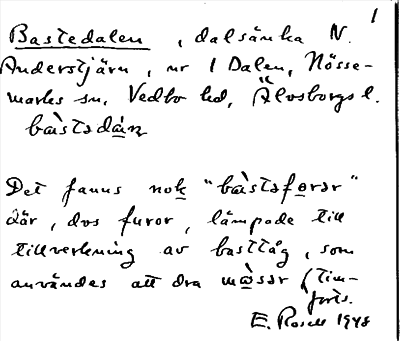 1
Bastedalen, dalsänka N.
Anderstjärn, nr 1 Dalen, Nösse-
marks sn, Vedbo hd, Älvsborgs l.
bàstədàn
Det fanns nok "bàstəforər"
där, dvs furor, lämpade till
tillverkning av basttåg, som
användes att dra måsər (tim-
forts.
E. Rosell 1948